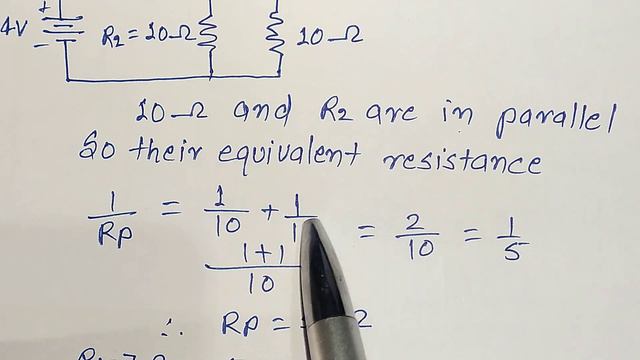 4V R2 = 10Ω 10Ω
10Ω and R2 are in parallel
So their equivalent resistance
1/Rp = 1/10 + 1/1 = 2/10 = 1/5
1+1/10
∴ Rp =